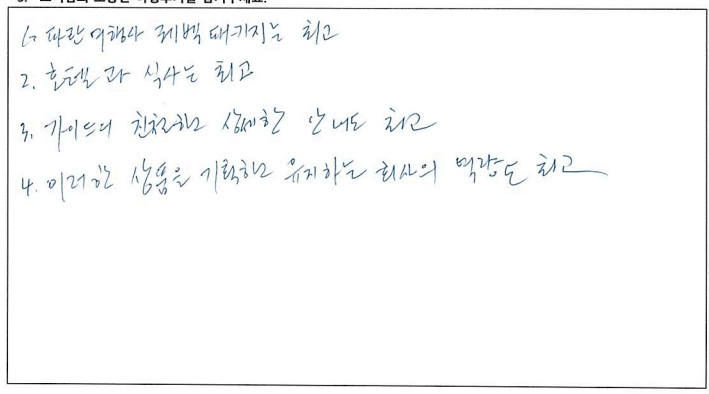 1. 파란여행사 레벨 때까지는 최고
2. 호텔과 식사는 최고
3. 가이드의 친절하고 상세한 안내도 최고
4. 이러한 상품을 기획하고 유지하는 회사의 역량도 최고